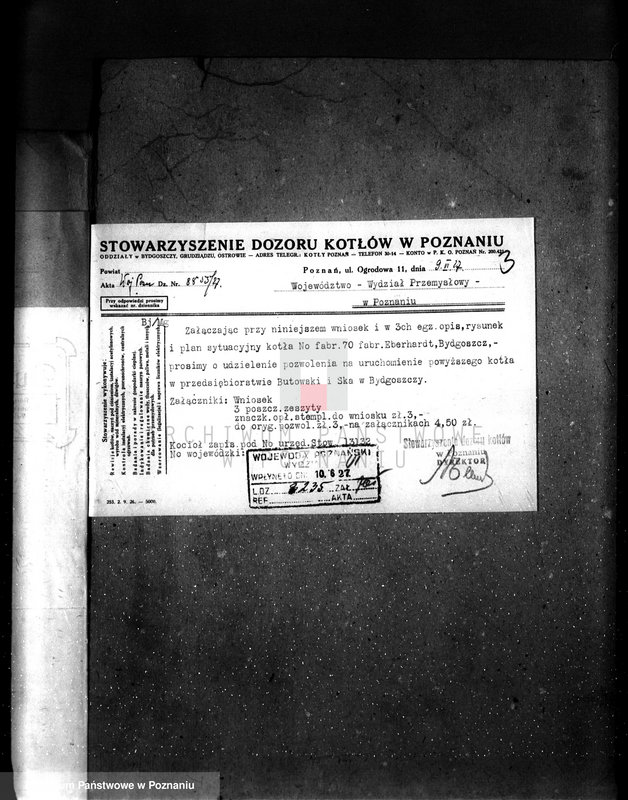 STOWARZYSZENIE DOZORU KOTŁÓW W POZNANIU
ODDZIAŁY w BYDGOSZCZY, GRUDZIĄDZU, OSTROWIE — ADRES TELEGR.: KOTŁY POZNAŃ — TELEFON 30-14 — KONTO w P. K. O. POZNAŃ Nr.
3
Powiat
Poznań, ul. Ogrodowa 11, dnia
Akta Dz. Nr.
Województwo - Wydział Przemysłowy -
w Poznaniu
Przy odpowiedzi prosimy
wskazać nr. dziennika
Bj/Mg
Załączając przy niniejszem wniosek i w 3ch egz.opis,rysunek
i plan sytuacyjny kotła No fabr.70 fabr.Eberhardt,Bydgoszcz,-
prosimy o udzielenie pozwolenia na uruchomienie powyższego kotła
w przedsiębiorstwie Butowski i Ska w Bydgoszczy.
Załączniki: Wniosek
3 poszcz.zeszyty
znaczk.opł.stempl.do wniosku zł.3,-
do oryg.pozwol.zł.3,-na załącznikach 4,50 zł.
Kocioł zapis.pod No urzęd.Stow. 13132
No wojewódzki:
Stowarzyszenie Dozoru kotłów
w Poznaniu
DYREKTOR
WOJEWODA POZNAŃSKI
WYDZ
WPŁYNĘŁO DN. 10.6 27
L.DZ. 8235 ZAŁ.
REF. AKTA
Stowarzyszenie wykonywuje:
353. 2. 9. 26. — 5000.
ARCHIWUM PAŃSTWOWE
W POZNANIU
Państwowe w Poznaniu